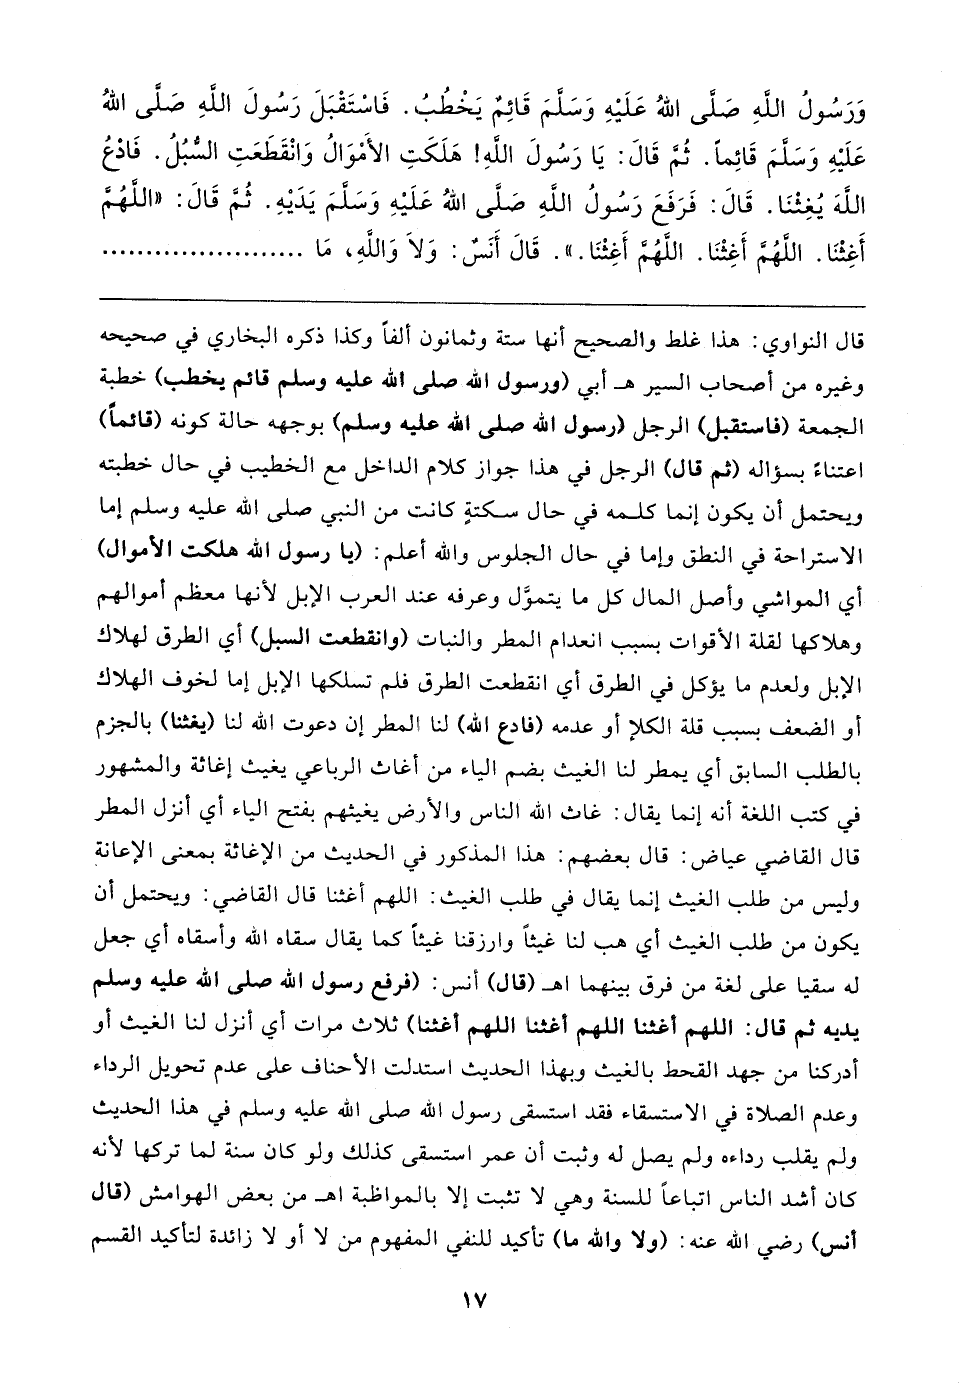 وَرَسُولُ اللَّهِ صَلَّى اللهُ عَلَيْهِ وَسَلَّمَ قَائِمٌ يَخْطُبُ. فَاسْتَقْبَلَ رَسُولَ اللَّهِ صَلَّى اللهُ
عَلَيْهِ وَسَلَّمَ قَائِماً. ثُمَّ قَالَ: يَا رَسُولَ اللَّهِ! هَلَكَتِ الأَمْوَالُ وَانْقَطَعَتِ السُّبُلُ. فَادْعُ
اللَّهَ يُغِثْنَا. قَالَ: فَرَفَعَ رَسُولُ اللَّهِ صَلَّى اللهُ عَلَيْهِ وَسَلَّمَ يَدَيْهِ. ثُمَّ قَالَ: «اللَّهُمَّ
أَغِثْنَا. اللَّهُمَّ أَغِثْنَا. اللَّهُمَّ أَغِثْنَا.». قَالَ أَنَسٌ: وَلاَ وَاللَّهِ، مَا ......................
قال النواوي: هذا غلط والصحيح أنها ستة وثمانون ألفاً وكذا ذكره البخاري في صحيحه
وغيره من أصحاب السير هـ أبي (ورسول الله صلى الله عليه وسلم قائم يخطب) خطبة
الجمعة (فاستقبل) الرجل (رسول الله صلى الله عليه وسلم) بوجهه حالة كونه (قائماً)
اعتناءً بسؤاله (ثم قال) الرجل في هذا جواز كلام الداخل مع الخطيب في حال خطبته
ويحتمل أن يكون إنما كلمه في حال سكتةٍ كانت من النبي صلى الله عليه وسلم إما
الاستراحة في النطق وإما في حال الجلوس والله أعلم: (يا رسول الله هلكت الأموال)
أي المواشي وأصل المال كل ما يتموَّل وعرفه عند العرب الإبل لأنها معظم أموالهم
وهلاكها لقلة الأقوات بسبب انعدام المطر والنبات (وانقطعت السبل) أي الطرق لهلاك
الإبل ولعدم ما يؤكل في الطرق أي انقطعت الطرق فلم تسلكها الإبل إما لخوف الهلاك
أو الضعف بسبب قلة الكلإ أو عدمه (فادع الله) لنا المطر إن دعوت الله لنا (يغثنا) بالجزم
بالطلب السابق أي يمطر لنا الغيث بضم الياء من أغاث الرباعي يغيث إغاثة والمشهور
في كتب اللغة أنه إنما يقال: غاث الله الناس والأرض يغيثهم بفتح الياء أي أنزل المطر
قال القاضي عياض: قال بعضهم: هذا المذكور في الحديث من الإغاثة بمعنى الإعانة
وليس من طلب الغيث إنما يقال في طلب الغيث: اللهم أغثنا قال القاضي: ويحتمل أن
يكون من طلب الغيث أي هب لنا غيثاً وارزقنا غيثاً كما يقال سقاه الله وأسقاه أي جعل
له سقيا على لغة من فرق بينهما اهـ (قال) أنس: (فرفع رسول الله صلى الله عليه وسلم
يديه ثم قال: اللهم أغثنا اللهم أغثنا اللهم أغثنا) ثلاث مرات أي أنزل لنا الغيث أو
أدركنا من جهد القحط بالغيث وبهذا الحديث استدلت الأحناف على عدم تحويل الرداء
وعدم الصلاة في الاستسقاء فقد استسقى رسول الله صلى الله عليه وسلم في هذا الحديث
ولم يقلب رداءه ولم يصل له وثبت أن عمر استسقى كذلك ولو كان سنة لما تركها لأنه
كان أشد الناس اتباعاً للسنة وهي لا تثبت إلا بالمواظبة اهـ من بعض الهوامش (قال
أنس) رضي الله عنه: (ولا والله ما) تأكيد للنفي المفهوم من لا أو لا زائدة لتأكيد القسم
١٧